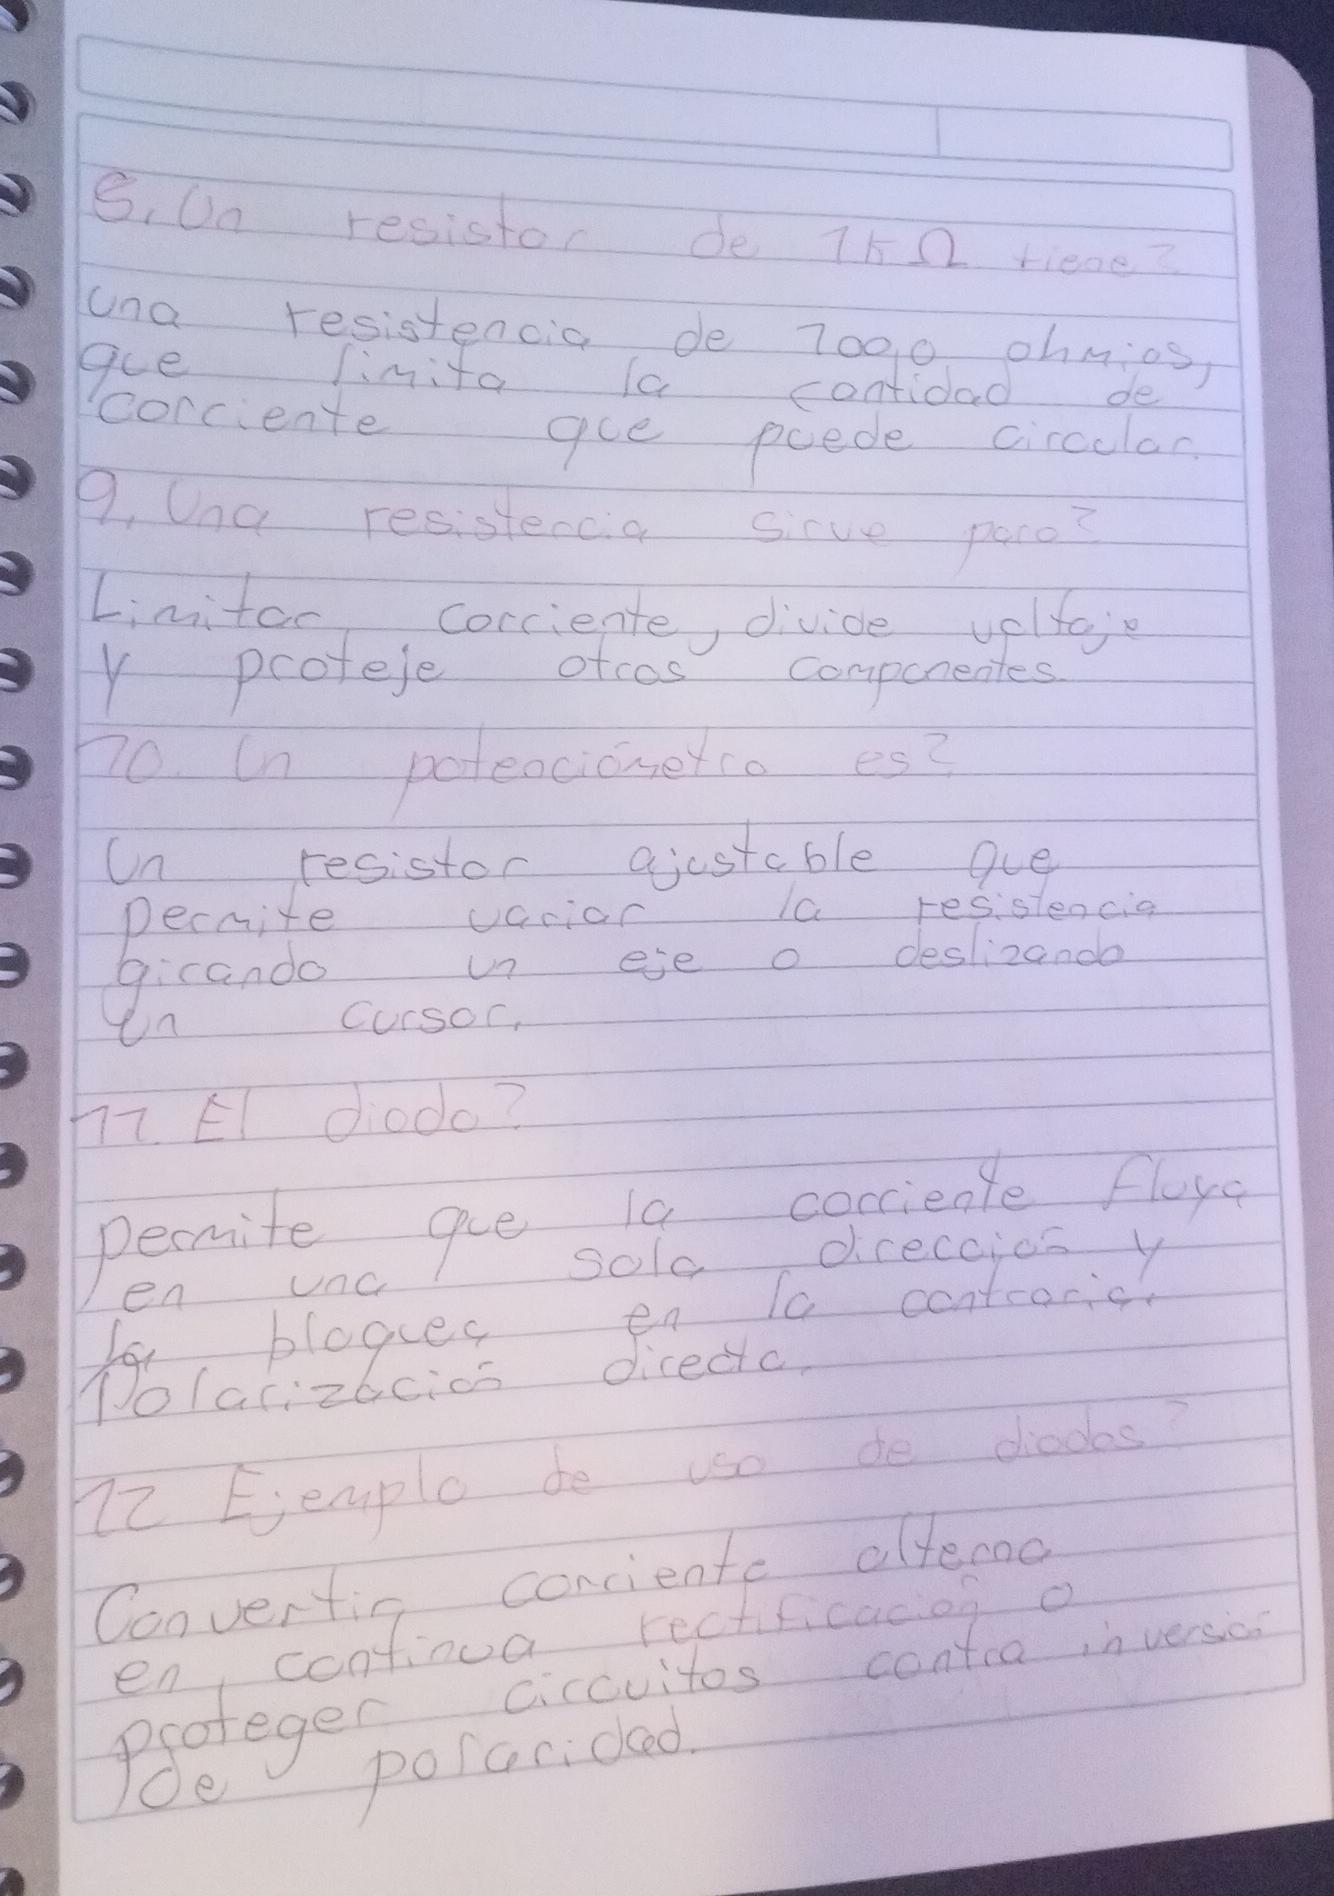 8. Un resistor de 1k Ω tiene?
una resistencia de 1000 ohmios,
que limita la cantidad de
corriente que puede circular.
9. Una resistencia sirve para?
Limitar corriente, divide voltaje
y proteje otros componentes.
10. Un potenciómetro es?
Un resistor ajustable que
permite variar la resistencia
girando un eje o deslizando
un cursor.
11. El diodo?
permite que la corriente fluya
en una sola dirección y
la bloquea en la contraria.
Polarización directa.
12 Ejemplo de uso de diodos?
Convertir corriente alterna
en continua rectificación o
proteger circuitos contra inversión
de polaridad.